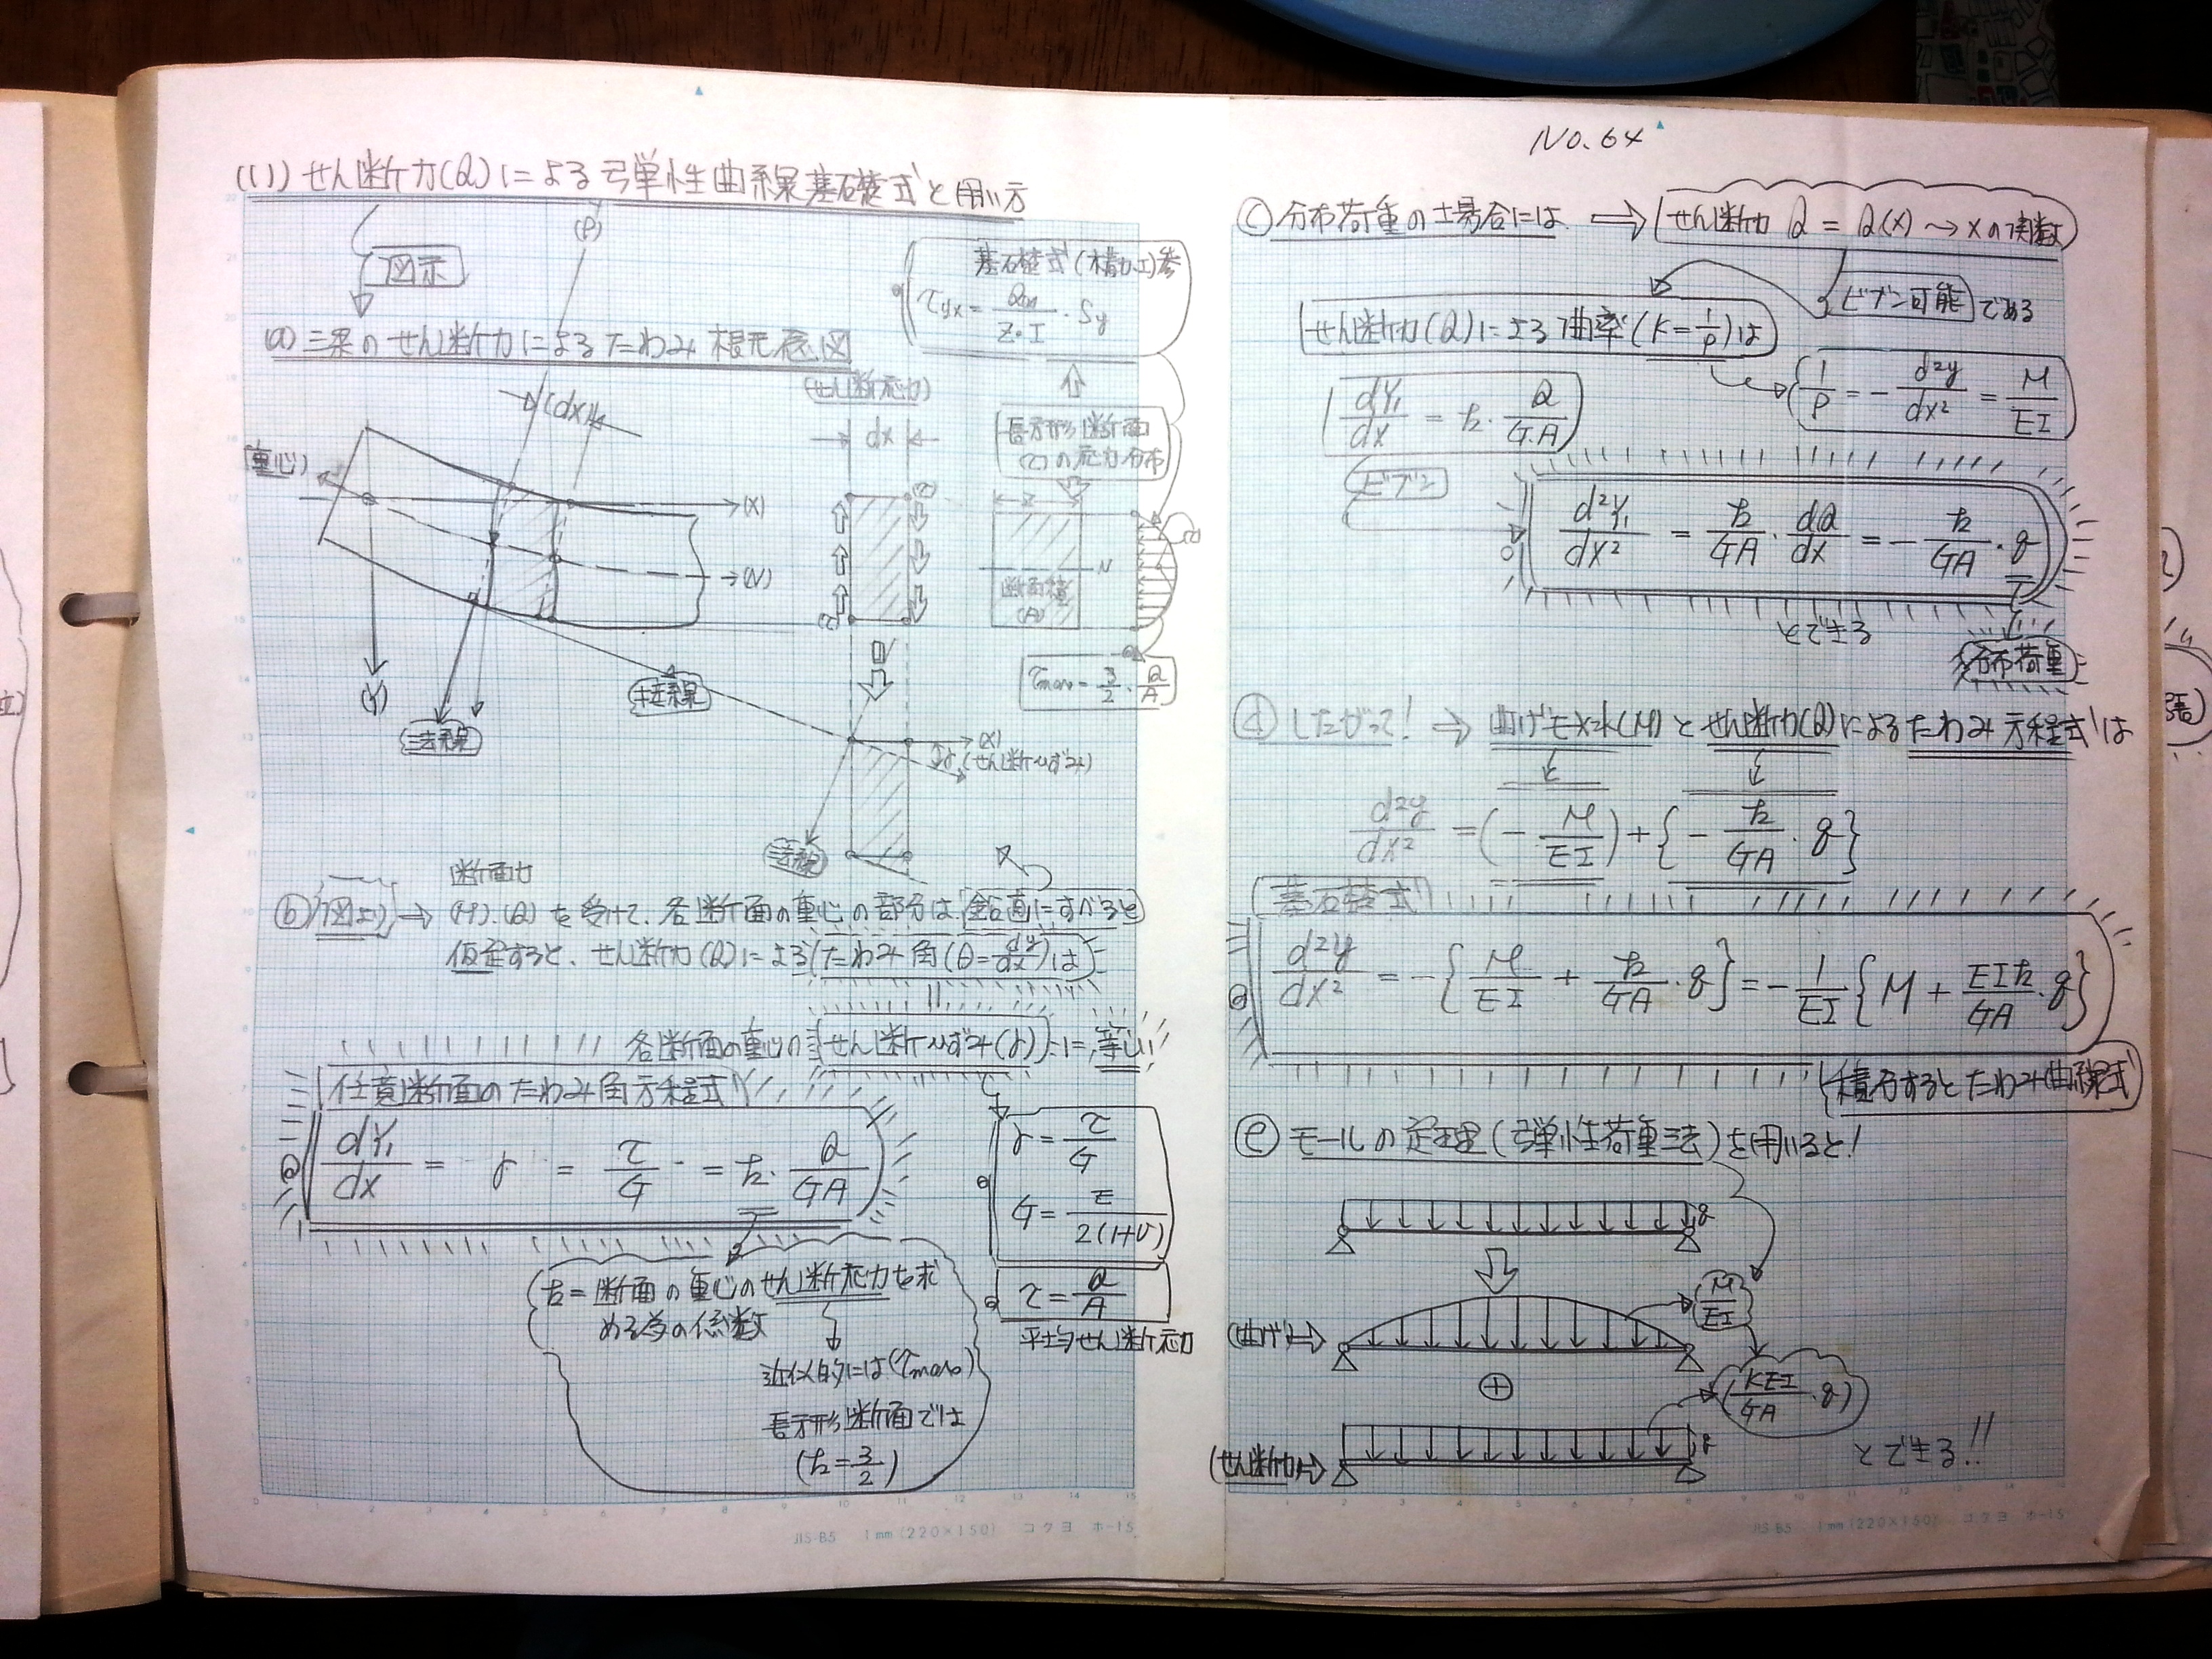 No.64
(1) せん断力(Q)による弾性曲線基礎式と用い方
図示
(ρ)
基礎式(構力I)参
τyx = Q / Z・I ・Sy
ⓐ 梁のせん断力によるたわみ概念図
(せん断応力)
(dx)
dx
長方形断面
(τ)の応力分布
(重心)
(X)
(τ)
Z
N
(N)
断面積
(A)
(τ)
τmax = 3/2・Q/A
(Y)
接線
法線
(X)
γ(せん断ひずみ)
法線
断面力
ⓑ 図より → (M).(Q)を受けて、各断面の重心の部分は鉛直にすべると
仮定すると、せん断力(Q)によるたわみ角(θ=dy/dx)は
各断面の重心のせん断ひずみ(γ)に等しい
任意断面のたわみ角方程式
dY₁/dx = γ = τ/G = k・Q/GA
γ = τ/G
G = E/2(1+ν)
τ = Q/A
平均せん断応力
k=断面の重心のせん断応力を求
める為の係数
近似的には(τmax)
長方形断面では
(k=3/2)
ⓒ 分布荷重の場合には ⇒ せん断力 Q = Q(x) ~→ xの関数
ビブン可能である
せん断力(Q)による曲率(K=1/ρ)は
1/ρ = -d²y/dx² = M/EI
dY₁/dx = k・Q/G.A
ビブン
d²Y₁/dx² = k/GA・dQ/dx = -k/GA・q
とできる
分布荷重
ⓓ したがって! → 曲げモメント(M)とせん断力(Q)によるたわみ方程式は
d²y/dx² = (-M/EI) + {-k/GA・q}
基礎式
d²y/dx² = -{M/EI + k/GA・q} = -1/EI{M + EIk/GA・q}
積分するとたわみ曲線式
ⓔ モールの定理(弾性荷重法)を用いると!
q
M/EI
(曲げ)→
⊕
(KEI/GA・q)
q
(せん断力)→
とできる!!
JIS-B5 1mm(220×150) コクヨ ホ-15
JIS-B5 1mm(220×150) コクヨ ホ-15